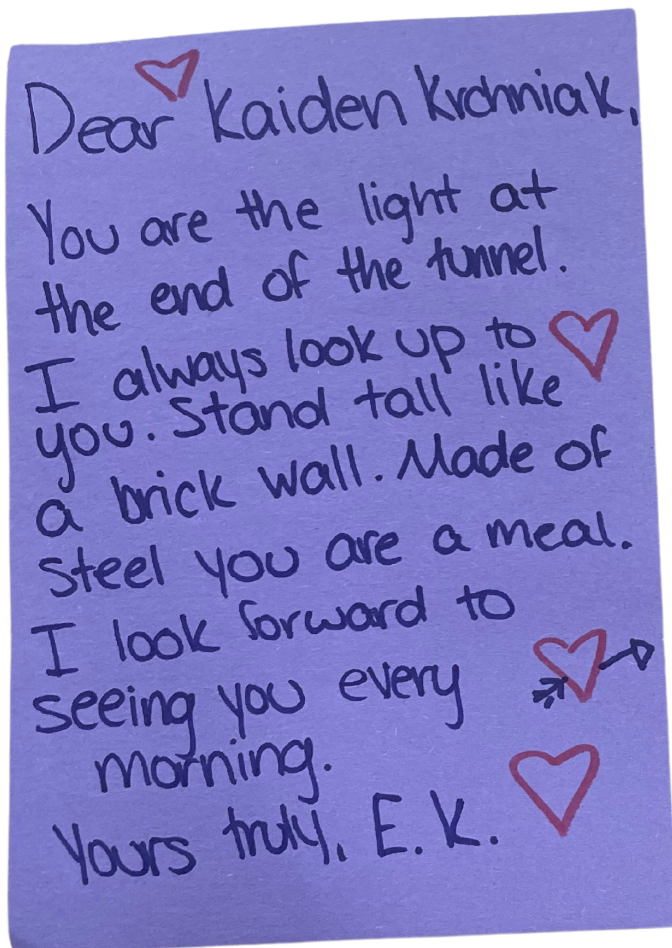 Dear Kaiden Krchniak,
You are the light at
the end of the tunnel.
I always look up to
you. Stand tall like
a brick wall. Made of
steel you are a meal.
I look forward to
seeing you every
morning.
Yours truly, E.K.